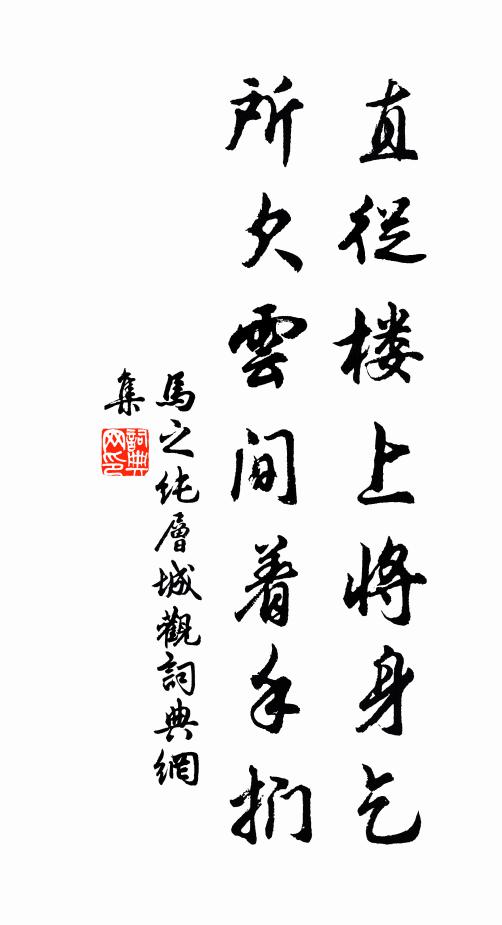 直從楼上將身乞
所欠雲間着手捫
馬之純層城觀詞典網
集
詞典
网印